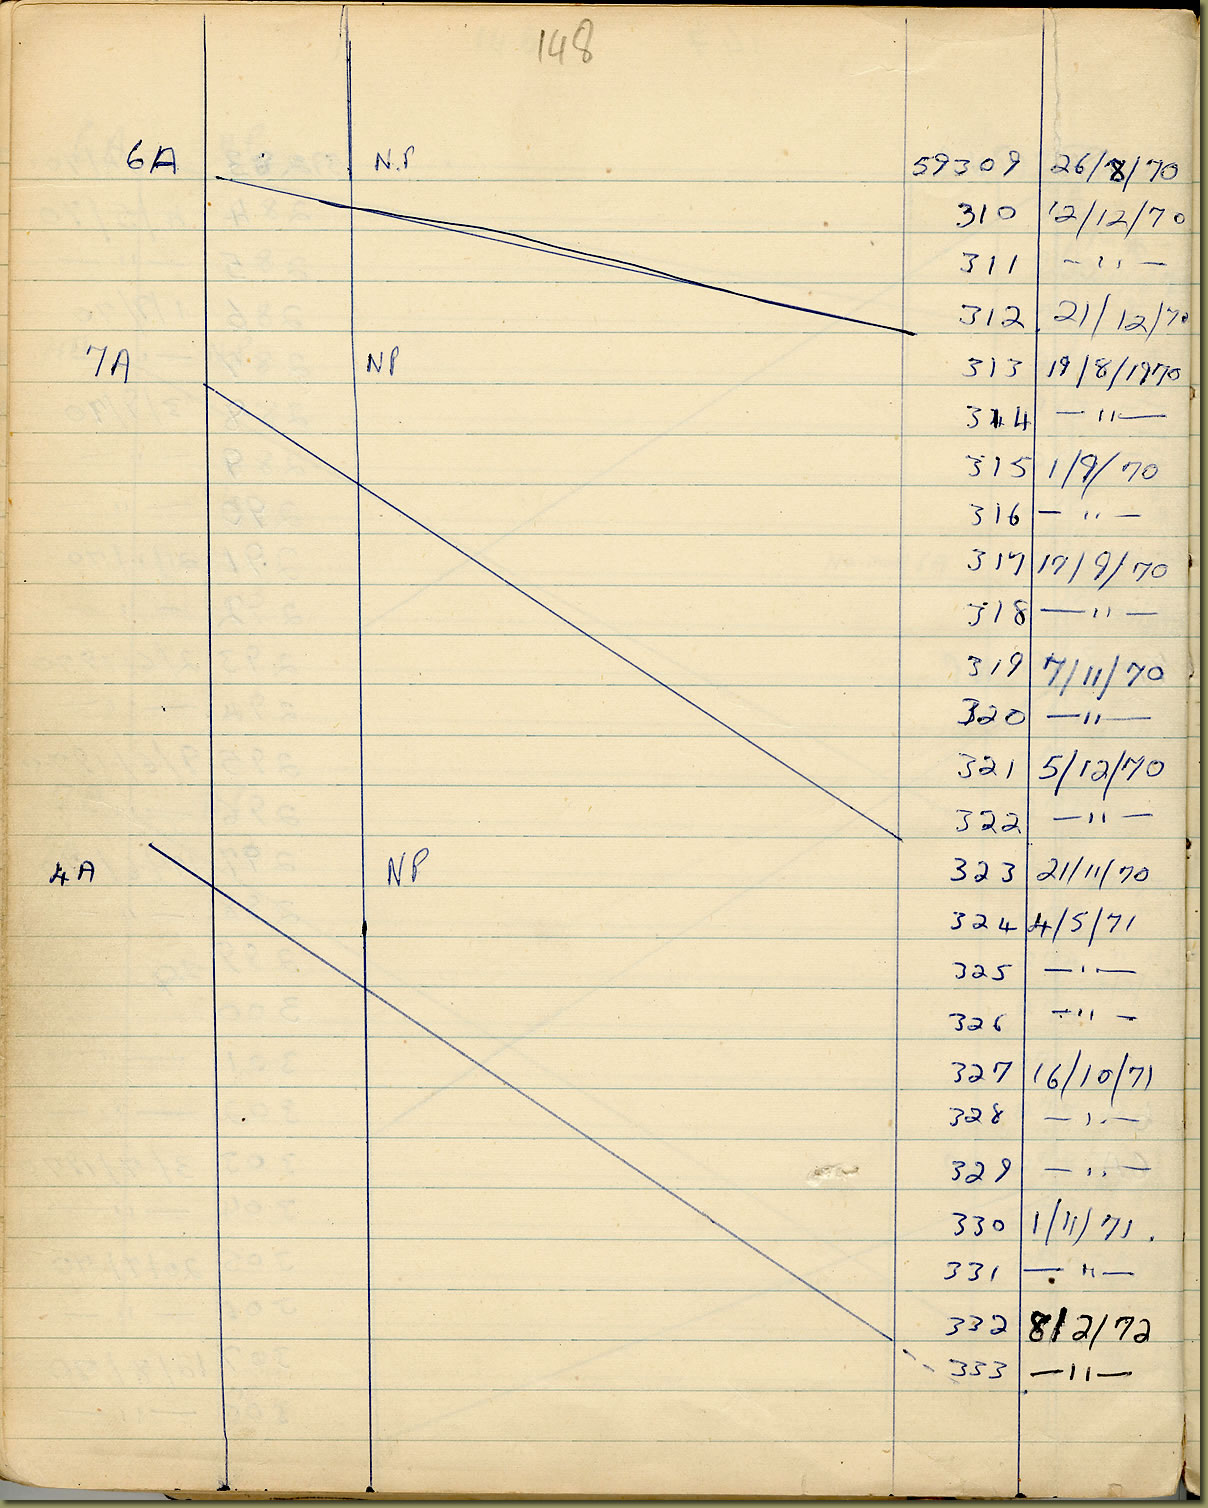 148
6A N.P 59309 26/8/70
310 12/12/70
311 -"-
312 21/12/70
7A NP 313 19/8/1970
314 -"-
315 1/9/70
316 -"-
317 17/9/70
318 -"-
319 7/11/70
320 -"-
321 5/12/70
322 -"-
4A NP 323 21/11/70
324 4/5/71
325 -"-
326 -"-
327 16/10/71
328 -"-
329 -"-
330 1/11/71.
331 -"-
332 8/2/72
333 -"-